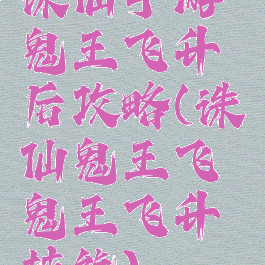 诛仙手游
鬼王飞升
后攻略(诛
仙鬼王飞
鬼王飞升